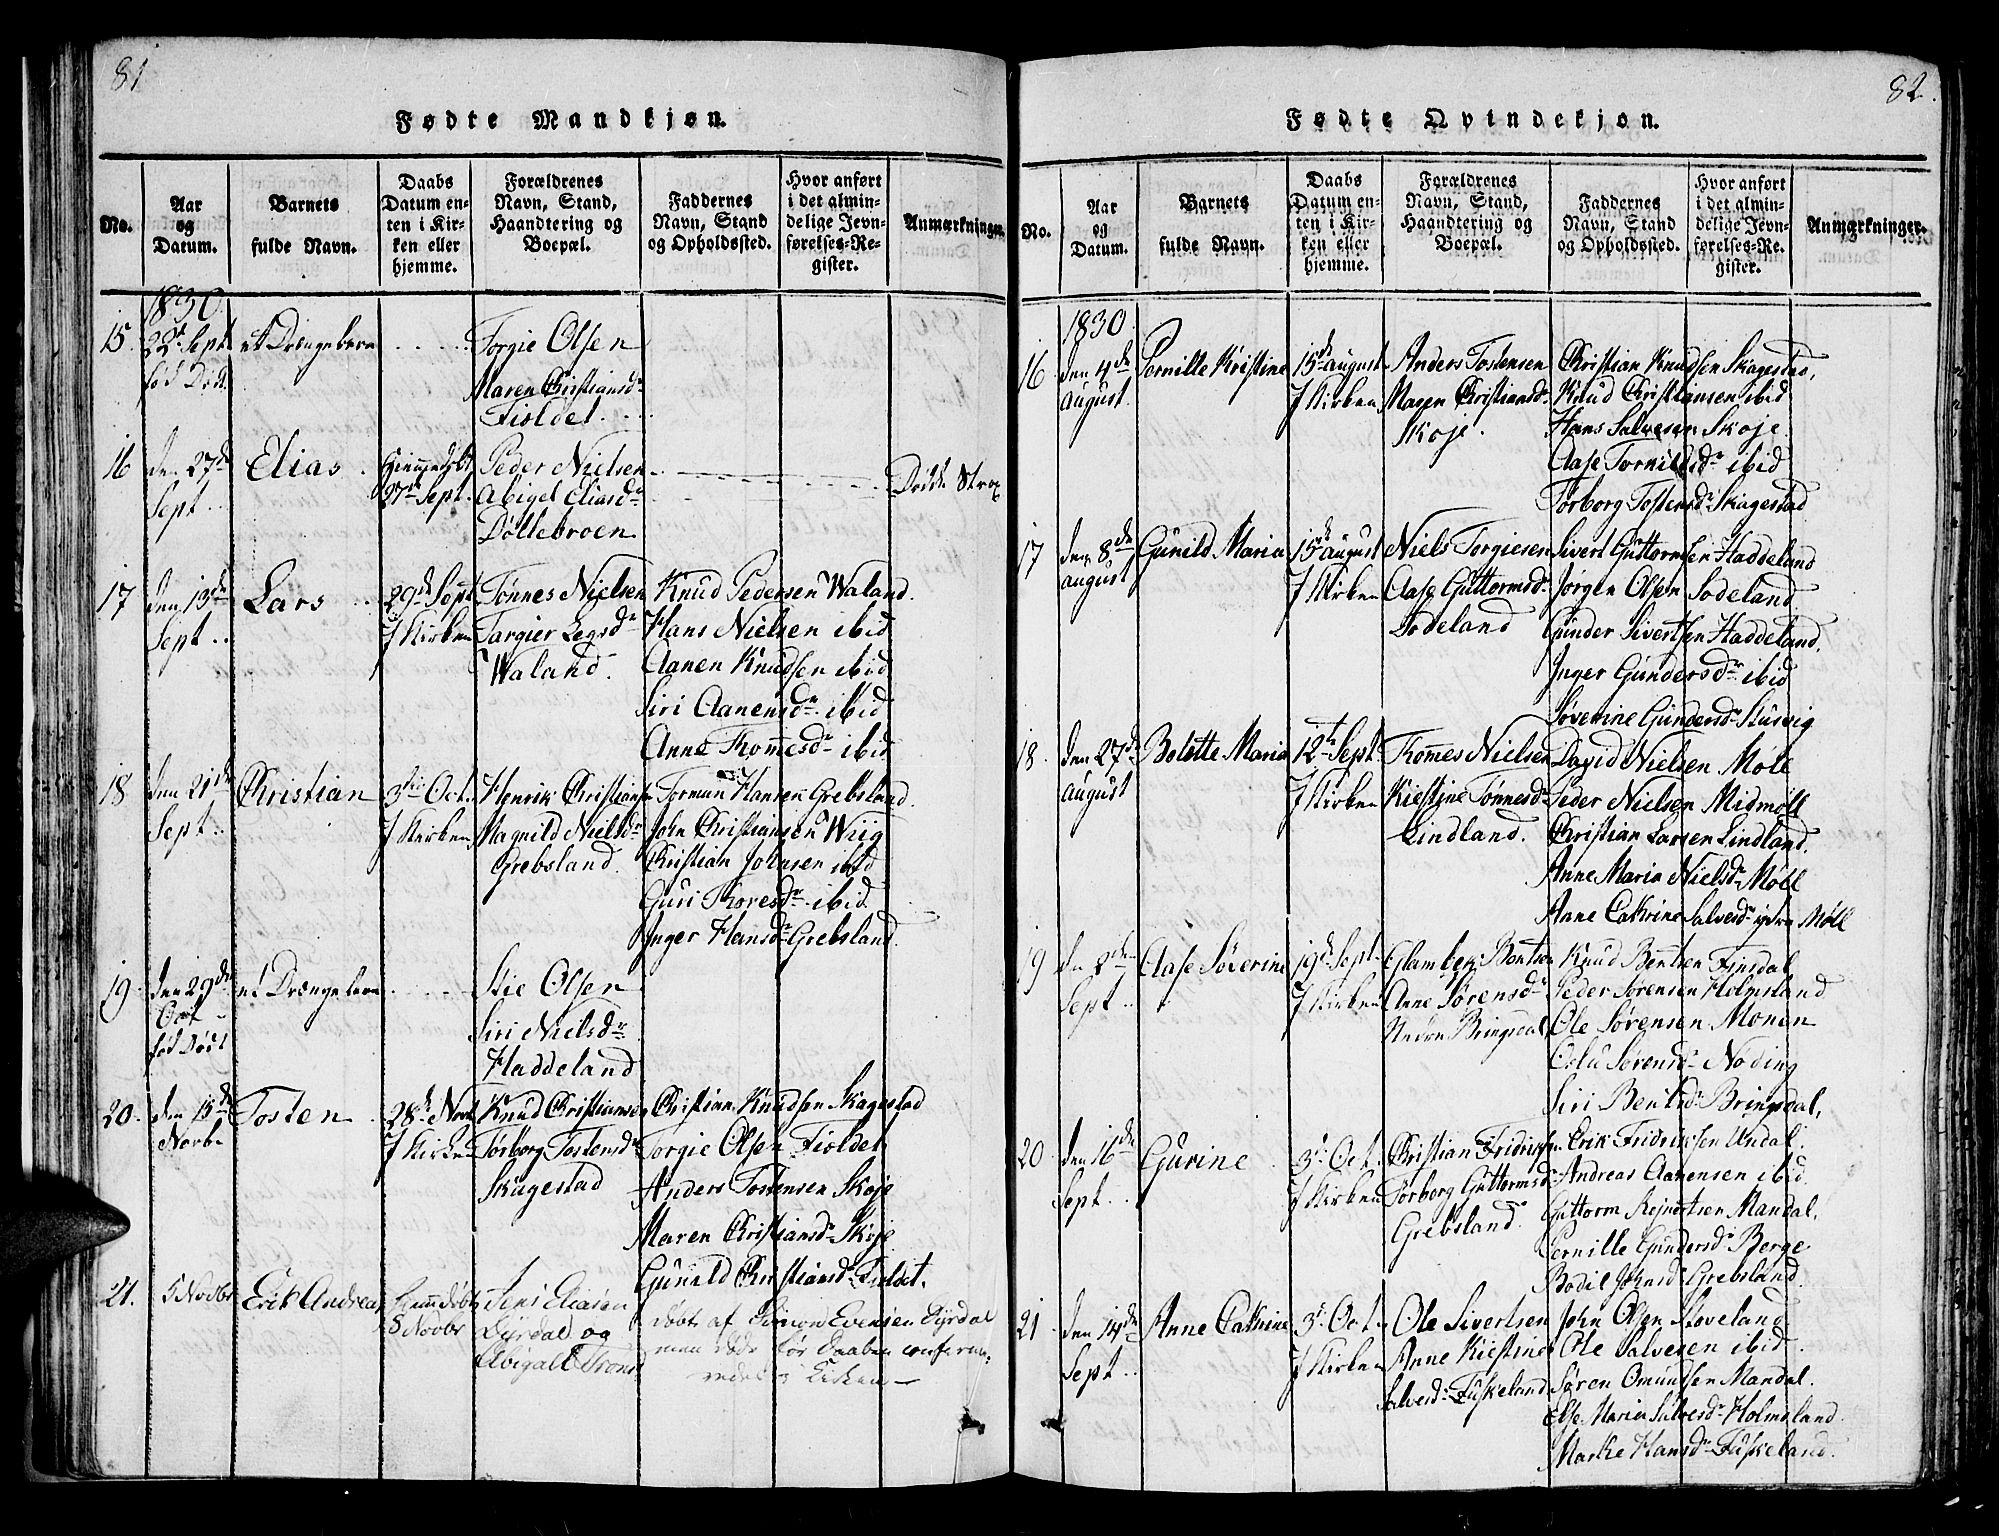 81
Fødte Mandkjøn.
No.
Aar
og
Datum.
Barnets
fulde Navn.
Daabs
Datum en-
ten i Kir-
ken eller
hjemme.
Forældrenes
Navn, Stand,
Haandtering og
Boepæl.
Faddernes
Navn, Stand
og Opholdssted.
Hvor anført
i det almin-
delige Jevn-
førelses-Re-
gister.
Anmærkninger.
1830
15. 22d Sept
fød Død.
et Drængebarn
Torgie Olsen
Maren Christiansdr
Fioldet.
16 den 27de
Sept
Elias
Hiemmedøbt
27de Sept.
Peder Nielsen
Abigel Eliasdr
Døllebroen
Døde Strax
17 den 13de
Sept
Lars
29de Sept
I Kirken
Tønnes Nielsen
Targier Legsdr
Waland.
Knud Pedersen Waland.
Hans Nielsen ibid
Aanen Knudsen ibid
Siri Aanensdr ibid
Anne Tommesdr ibid
18 den 21de
Sept
Christian
3die Oct.
I Kirken
Henrik Christians
Magnild Nielsdr
Grebsland.
Tormun Hansen Grebsland.
John Christiansen Wiig
Christian Johnsen ibid
Guri Toresdr ibid
Inger Hansdr Grebsland.
19 den 29de
Oct
fød Død
et Drængebarn
Stie Olsen
Siri Nielsdr
Haddeland
20. den 15de
Novbr
Tosten
28de Novb
I Kirken
Knud Christiansen
Torborg Tostensdr
Skagestad
Christian Knudsen Skagestad
Torgie Olsen Fioldet
Anders Tostensen Skoje
Maren Christiansdr Skoje
Gunild Christiansdr Fioldet.
21. 5 Novbr
Erik Andreas
Hiemdøbt
5 Novbr
Jens Eliasen
Dyrdal og
Abigall Trons
døbt af Simon Evensen Dyrdal
men døde før Daaben confirme-
redes i Kirken —
82.
Fødte Qvindekjøn.
No.
Aar
og
Datum.
Barnets
fulde Navn.
Daabs
Datum en-
ten i Kir-
ken eller
hjemme.
Forældrenes
Navn, Stand,
Haandtering og
Boepæl.
Faddernes
Navn, Stand
og Opholdssted.
Hvor anført
i det almin-
delige Jevn-
førelses-Re-
gister.
Anmærkninger.
1830
16 den 4de
August
Pernille Kristine
15de august
I Kirken
Anders Tostensen
Maren Christiansdr
Skoje.
Christian Knudsen Skagestad,
Knud Christiansen ibid
Hans Salvesen Skoje.
Aase Tornildsdr ibid
Torborg Tostensdr Skagestad
17 den 8de
august
Gunild Maria
15de august
I Kirken
Niels Torgiesen
Aase Guttormsdr
Sodeland
Sivert Guttormsen Haddeland
Jørgen Olsen Sodeland
Gunder Sivertsen Haddeland.
Inger Gundersdr ibid
Søverine Gundersdr Stusvig
18. den 27de
august
Bolette Maria
12te Sept.
I Kirken
Tomes Nielsen
Kiestine Tønnesdr
Lindland.
David Nielsen Møll
Peder Nielsen Midmøll
Christian Larsen Lindland.
Anne Maria Nielsdr Møll
Anne Catrine Salvesdr ydre Møll
19 den 2den
Sept
Aase Søverine
19de Sept.
I Kirken
Glambek Bentsen
Anne Sørensdr
Nedre Bringsdal
Knud Bentsen Finsdal
Peder Sørensen Holmsland
Ole Sørensen Monen
Oslu Sørensdr Noding
Siri Bentsdr Bringsdal,
20 den 16de
Sept
Gurine
3de Oct.
I Kirken
Christian Fridriksen
Torborg Guttormsdr
Grebsland.
Erik Fridriksen Undal.
Andreas Aanensen ibid.
Guttorm Rejnertsen Mandal,
Pernille Gundersdr Berge
Bodil Johnsdr Grebsland.
21 den 14de
Sept
Anne Catrine
3de Oct.
I Kirken
Ole Sivertsen
Anne Kiestine
Salvesdr Fuskeland
John Olsen Stoveland
Ole Salvesen ibid.
Søren Omundsen Mandal.
Else Maria Salvesdr Holmsland.
Marte Hansdr Fuskeland.